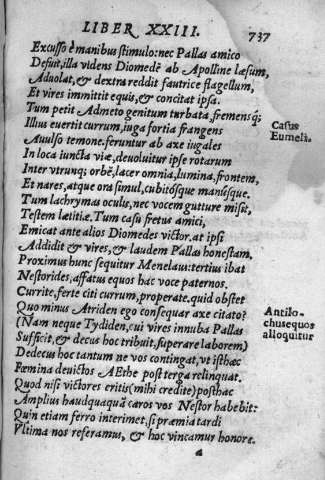 LIBER XXIII. 737
Excusso è manibus stimulo: nec Pallas amico
Defuit, illa videns Diomedē ab Apolline læsum,
Advolat, & dextra reddit fautrice flagellum,
Et vires immittit equis, & concitat ipsa.
Tum petit Admeto genitum turbata, fremensq́;
Casus
Illius evertit currum, iuga fortia frangens
Eumeli.
Avulso temone. feruntur ab axe iugales
In loca iuncta viæ, devoluitur ipse rotarum
Inter vtrunq; orbē, lacer omnia, lumina, frontem,
Et nares, atque ora simul, cubitósque manúsque.
Tum lachrymas oculus, nec vocem gutture misit,
Testem lætitiæ. Tum casu fretus amici,
Emicat ante alios Diomedes victor, at ipsi
Addidit & vires, & laudem Pallas honestam.
Proximus hunc sequitur Menelaus: tertius ibat
Nestorides, affatus equos hac voce paternos.
Currite, ferte citi currum, properate, quid obstet
Quo minus Atriden ego consequar axe citato?
Antilo-
(Nam neque Tydiden, cui vires innuba Pallas
chus equos
Sufficit, & decus hoc tribuit, superare laborem)
alloquitur
Dedecus hoc tantum ne vos contingat, vt isthæc
Fœmina devictos AEthe post terga relinquat.
Quod nisi victores eritis (mihi credite) posthac
Amplius haudquaquā caros vos Nestor habebit:
Quin etiam ferro interimet, si præmia tardi
Vltima nos referamus, & hoc vincamur honore.
a